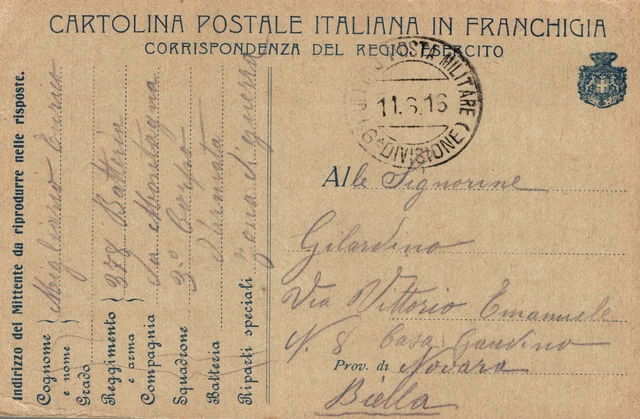 CARTOLINA POSTALE ITALIANA IN FRANCHIGIA
CORRISPONDENZA DEL REGIO ESERCITO
POSTA MILITARE
11.6.16
(6ª DIVISIONE)
Indirizzo del Mittente da riprodurre nelle risposte.
Cognome e nome Migliarino
Grado
Reggimento e arma 378 Batteria
Compagnia da Montagna
Squadrone 3º Corpo
Batteria d'armata
Riparti speciali Zona di guerra
Alle Signorine
Gilardino
Via Vittorio Emanuele
N. 8 Casa Gaudino
Prov. di Novara
Biella